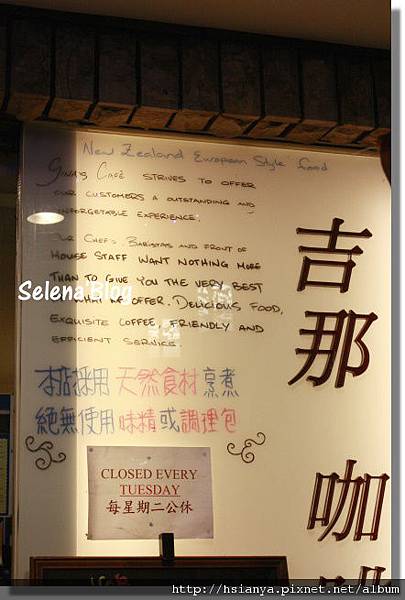 New Zealand European Style food
Gina's Café STRIVES TO OFFER
OUR CUSTOMERS A OUTSTANDING AND
UNFORGETABLE EXPERIENCE.
OUR CHEFS, BARISTAS AND FRONT OF
HOUSE STAFF WANT NOTHING MORE
THAN TO GIVE YOU THE VERY BEST
OFFER. DELICIOUS FOOD,
EXQUISITE COFFEE, FRIENDLY AND
EFFICIENT SERVICE.
Selena'Blog
本店採用天然食材烹煮
絕無使用味精或調理包
CLOSED EVERY
TUESDAY
每星期二公休
吉那 咖
http://hsianya.pixnet.net/album